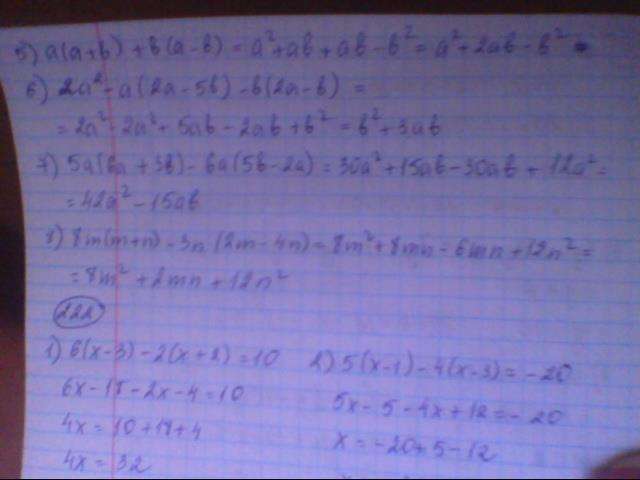 5) a(a+b)+b(a-b) = a²+ab+ab-b² = a²+2ab-b²
6) 2a²-a(2a-5b)-b(2a-b) =
= 2a²-2a²+5ab-2ab+b² = b²+3ab
7) 5a(6a+3b)-6a(5b-2a) = 30a²+15ab-30ab+12a² =
= 42a²-15ab
8) 8m(m+n)-3n(2m-4n) = 8m²+8mn-6mn+12n² =
= 8m²+2mn+12n²
222
1) 6(x-3)-2(x+2)=10 2) 5(x-1)-4(x-3)=-20
6x-18-2x-4=10 5x-5-4x+12=-20
4x=10+18+4 x=-20+5-12
4x=32